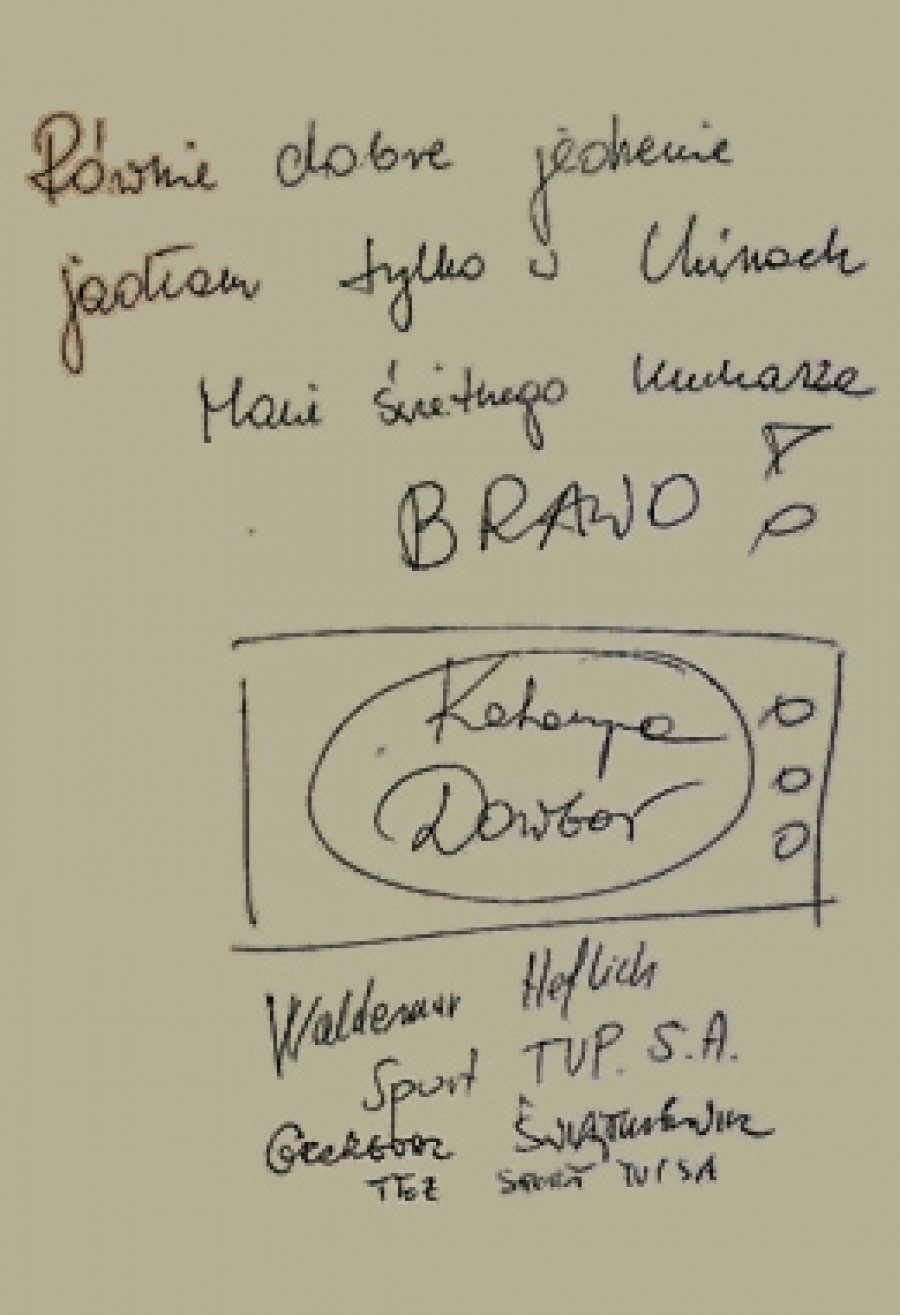 Równie dobre jedzenie
jadłam tylko w Chinach
Macie świetnego kucharza
BRAWO !
Katarzyna
Dowbor
Waldemar Heflich
Sport TVP. S.A.
Grzegorz
TEŻ SPORT TVP SA